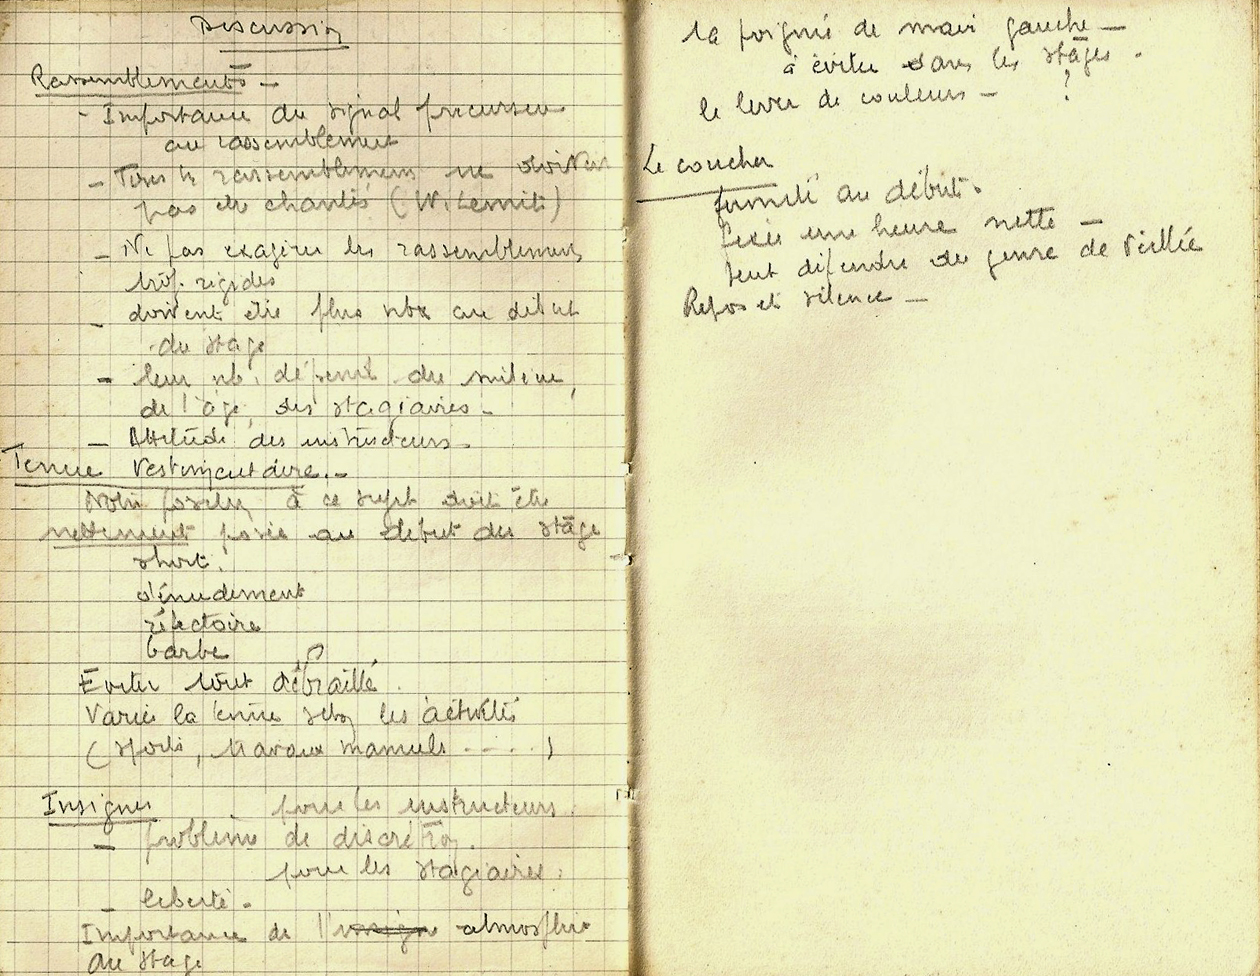 Discussion
Rassemblements -
- Importance du signal precurseur
au rassemblement
- Tous les rassemblements ne doivent
pas être chantés (W. Lemit)
- Ne pas exagérer les rassemblements
trop rigides
- doivent être plus nbx au début
du stage
- leur nb. dépend du milieu,
de l'âge, des stagiaires -
- Attitude des instructeurs -
Tenue Vestimentaire. -
Notre position à ce sujet doit être
nettement posée au début du stage
short.
dénudement
réfectoire
barbe
Eviter tout débraillé.
Varier la tenue selon les activités
(sports, travaux manuels - - - - )
Insignes pour les instructeurs.
- problème de discrétion.
pour les stagiaires.
- liberté -
Importance de l' atmosphère
du stage
la poignée de main gauche -
à éviter dans les stages.
le lever de couleurs - ?
Le coucher
fermeté au début.
fixer une heure nette -
peut dépendre du genre de veillée
Repos et silence -